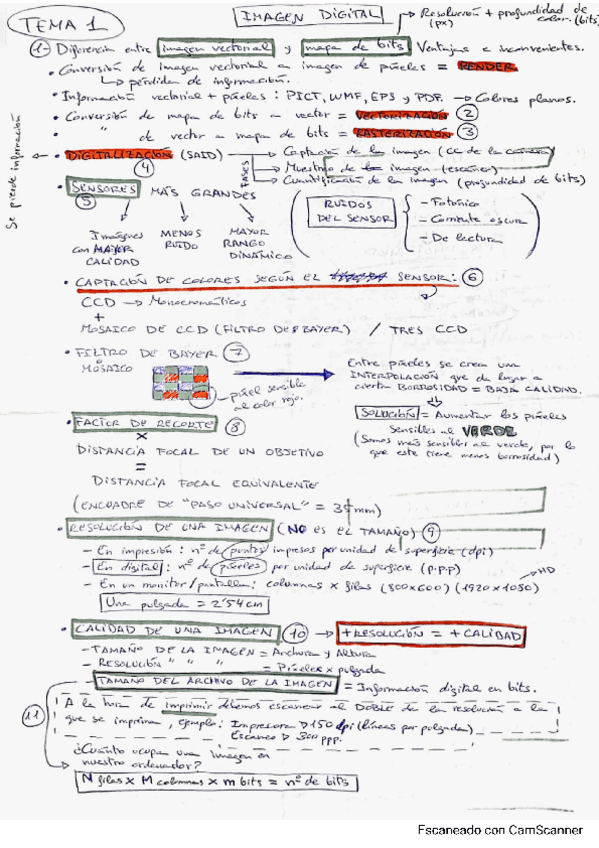 TEMA 1
IMAGEN DIGITAL → Resolución + profundidad de
(px) color. (bits)
1- Diferencia entre imagen vectorial y mapa de bits. Ventajas e inconvenientes.
• Conversión de imagen vectorial a imagen de píxeles = RENDER
↳ pérdidas de información.
• Información vectorial + píxeles : PICT, WMF, EPS y PDF. → Colores planos.
• Conversión de mapa de bits a vector = VECTORIZACIÓN 2
• " de vector a mapa de bits = RASTERIZACIÓN 3
Se pierde información
← • DIGITALIZACIÓN (SAID) FASES → Captación de la imagen (CC de la cámara)
4 → Muestreo de la imagen (escáner)
→ Cuantificación de la imagen (profundidad de bits)
• SENSORES MÁS GRANDES
5
Imágenes con MAYOR CALIDAD
MENOS RUIDO
MAYOR RANGO DINÁMICO
RUIDOS DEL SENSOR
- Fotónico
- Corriente oscura
- De lectura
• CAPTACIÓN DE COLORES SEGÚN EL SENSOR: 6
CCD → Monocromáticos
+
MOSAICO DE CCD (FILTRO DE BAYER) / TRES CCD
• FILTRO DE BAYER 7
o MOSAICO
→ píxel sensible
al color rojo.
Entre píxeles se crea una
INTERPOLACIÓN que da lugar a
cierta BORROSIDAD = BAJA CALIDAD.
SOLUCIÓN = Aumentar los píxeles
sensibles al VERDE
(Somos más sensibles al verde, por lo
que este tiene menos borrosidad)
• FACTOR DE RECORTE 8
×
DISTANCIA FOCAL DE UN OBJETIVO
=
DISTANCIA FOCAL EQUIVALENTE
(ENCUADRE DE "PASO UNIVERSAL" = 35 mm)
• RESOLUCIÓN DE UNA IMAGEN (NO ES EL TAMAÑO) 9
- En impresión : nº de puntos impresos por unidad de superficie (dpi)
- En digital : nº de píxeles por unidad de superficie (p.p.p)
- En un monitor/pantalla: columnas × filas (800×600) (1920×1080) → HD
Una pulgada = 2'54 cm
• CALIDAD DE UNA IMAGEN 10 → +RESOLUCIÓN = +CALIDAD
- TAMAÑO DE LA IMAGEN = Anchura y Altura
- RESOLUCIÓN " " " = Píxeles × pulgada
TAMAÑO DEL ARCHIVO DE LA IMAGEN = Información digital en bits.
11
A la hora de imprimir debemos escanear al DOBLE de la resolución a la
que se imprima, ejemplo: Impresora ▷ 150 dpi (líneas por pulgada)
Escaneo ▷ 300 ppp.
¿Cuánto ocupa una imagen en
nuestro ordenador?
N filas × M columnas × m bits = nº de bits
Escaneado con CamScanner